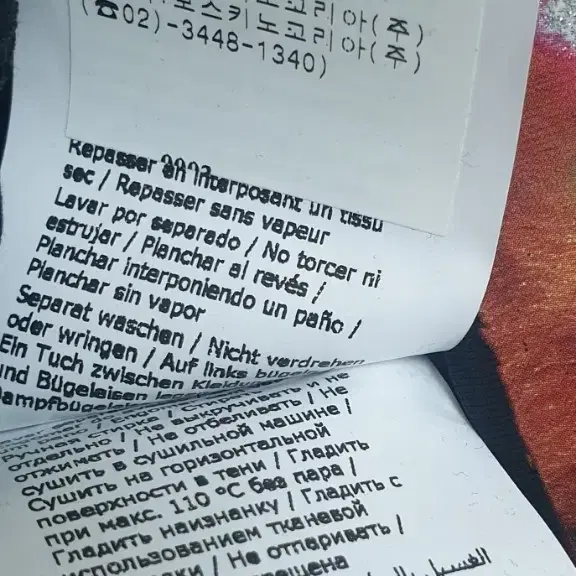 스키노코리아(주)
노스키노코리아(주)
(☎02)-3448-1340)
Repasser en interposant un tissu
sec / Repasser sans vapeur
Lavar por separado / No torcer ni
estrujar / Planchar al revés /
Planchar interponiendo un paño /
Planchar sin vapor
Separat waschen / Nicht verdrehen
oder wringen / Auf links
Ein Tuch zwischen
und Bügeleisen
отдельно / Не выкручивать и не
отжимать / Не отбеливать / Не
сушить в сушильной машине /
Сушить на горизонтальной
поверхности в тени / Гладить
при макс. 110 °C без пара /
Гладить наизнанку / Гладить с
использованием тканевой
/ Не отпаривать /
الغسيل